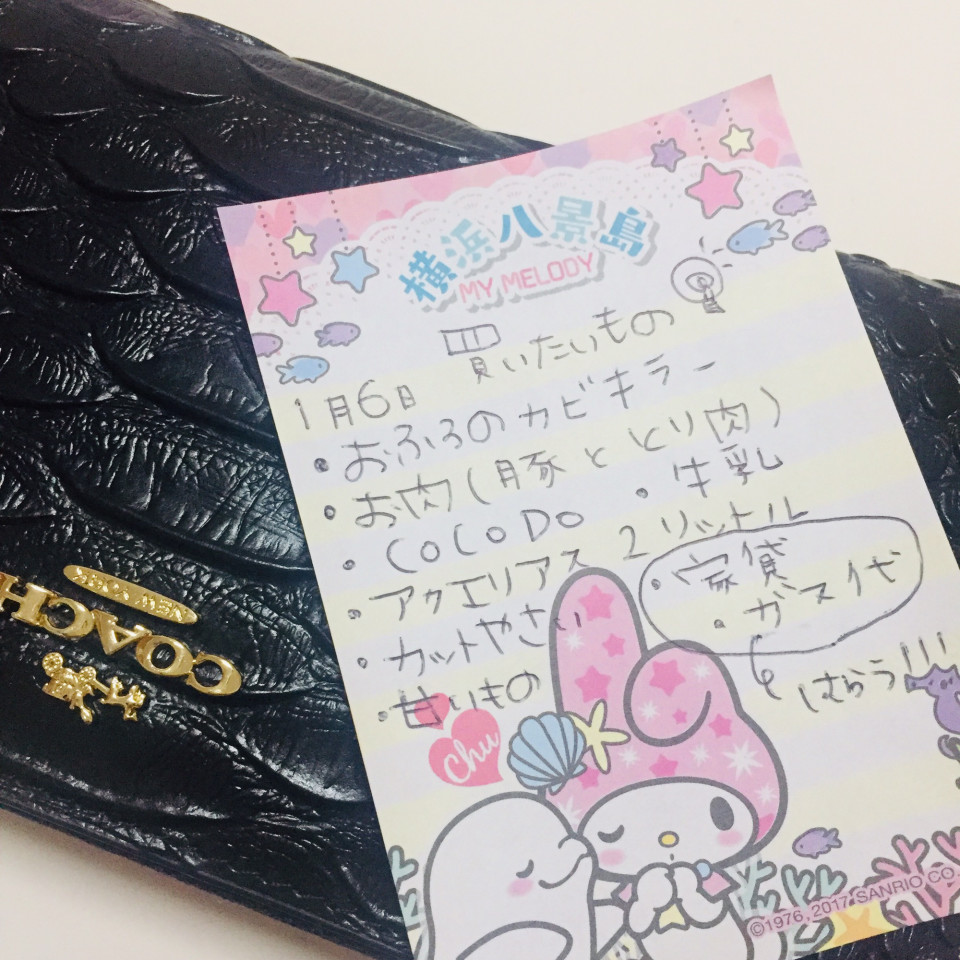 横浜八景島
MY MELODY
買いたいもの
1月6日
・おふろのカビキラー
・お肉(豚ととり肉)
・CoCoDo ・牛乳
・アクエリアス 2リットル
・カットやさい
・甘いもの
・家賃
・ガス代
はらう!!!
Chu
©1976, 2017 SANRIO CO.
COACH
NEW YORK